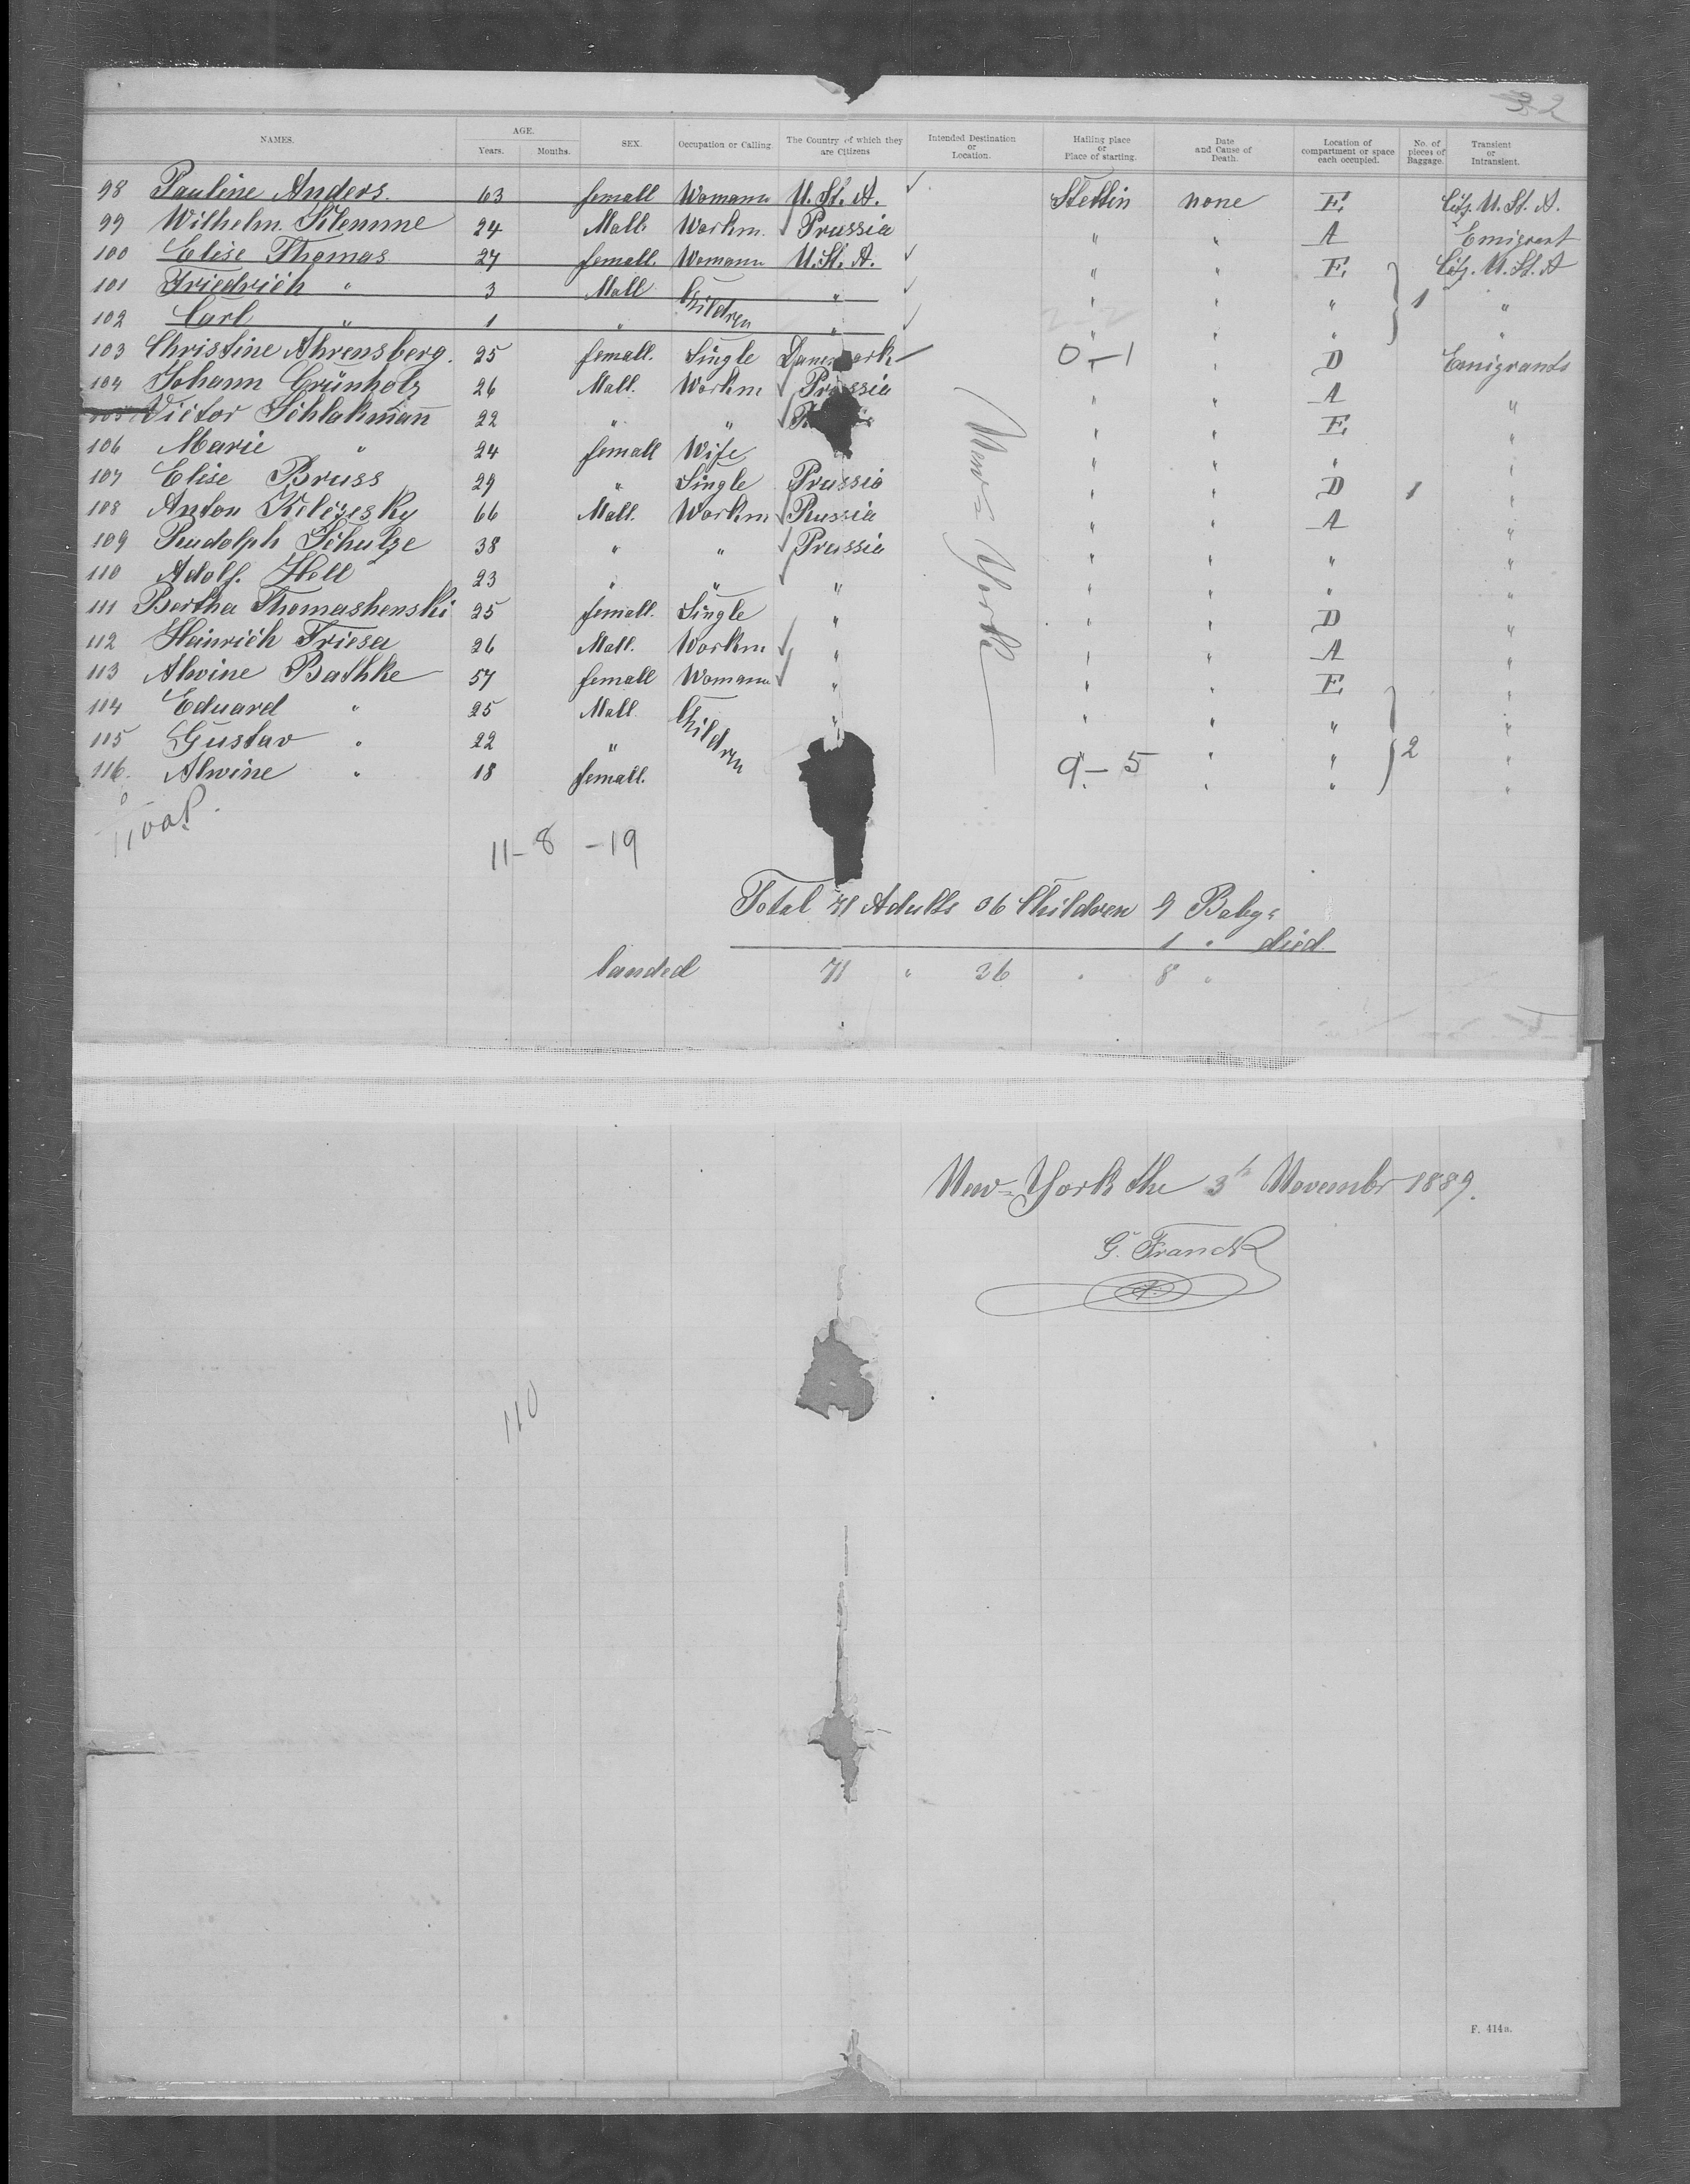 32
NAMES. AGE. SEX. Occupation or Calling. The Country of which they are Citizens Intended Destination or Location. Hailing place or Place of starting. Date and Cause of Death. Location of compartment or space each occupied. No. of pieces of Baggage. Transient or Intransient.
Years. Months.
98 Pauline Anders. 63 femall Womann U. St. A. Stettin none E Citz. U. St. A.
99 Wilhelm Klemme 24 Mall. Workm. Prussia " " A Emigrant
100 Elise Thomas 27 femall. Womann U. St. A. " " E Citz. U. St. A
101 Friedrich " 3 Mall Children " " " " 1 "
102 Carl " 1 " " " " " "
103 Christine Ahrensberg. 25 femall. Single 0-1 " D Emigrants
104 Johann Grünholz 26 Mall. Workm Prussia " " A "
105 Victor Schlakmann 22 " " " " E "
106 Marie " 24 femall Wife " " " "
107 Elise Bruss 29 " Single Prussia " " D 1 "
108 Anton 66 Mall. Workm Russia " " A "
109 Rudolph Schulze 38 " " Prussia " " " "
110 Adolf. Hell 23 " " " " " " "
111 Bertha Thomashenski 25 femall. Single " " " D "
112 Heinrich Friesa 26 Mall. Workm " " " A "
113 Alwine Bathke 57 femall Womann " " " E "
114 Eduard " 25 Mall Children " " " " "
115 Gustav " 22 " " " 2 "
116. Alwine " 18 femall. 9-5 " " "
New-York
11-8-19
Total 71 Adults 36 Children 9 Babys
1 " died
landed 71 " 36 " 8 "
New-York the 3th Novembr 1889.
G. Franck
110
F. 414a.